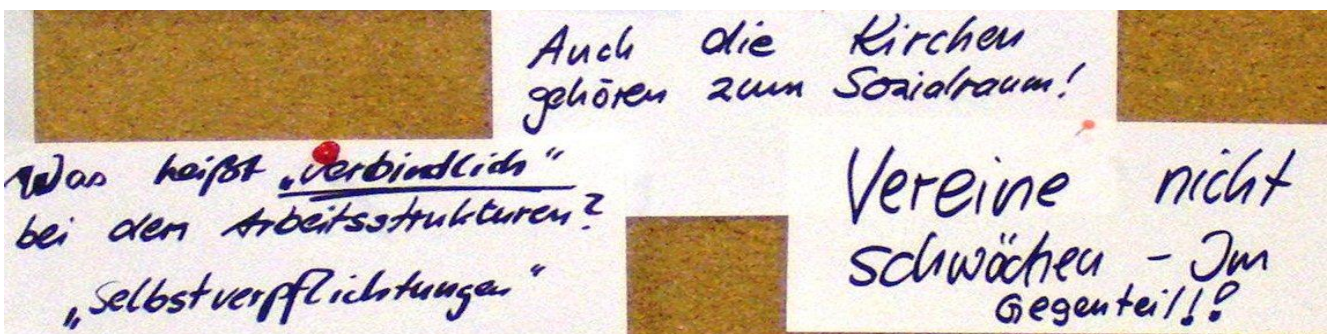 Auch die Kirchen
gehören zum Sozialraum!
Was heißt „verbindlich“
bei den Arbeitsstrukturen?
„Selbstverpflichtungen“
Vereine nicht
schwächen - Im
Gegenteil!!